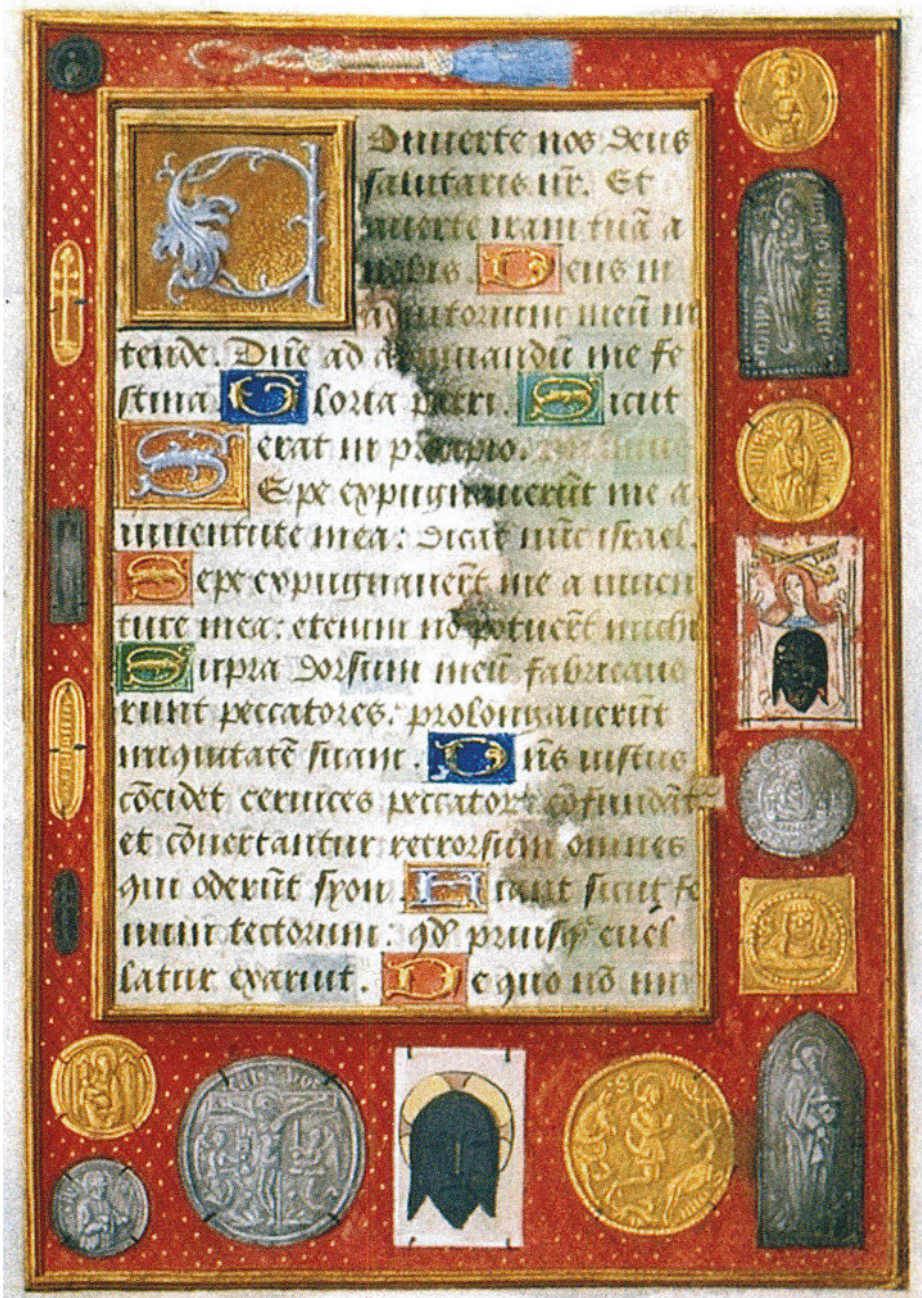 Onuerte nos deus
salutaris nr̄. Et
auerte iram tuā a
nobis. Deus in
adiutorium meū in
tende. Dn̄e ad adiuuandū me fe
stina. Gloria patri. Sicut
erat in prīcipio.
Sepe expugnauerūt me a
iuuentute mea: dicat nūc israel.
Sepe expugnauerūt me a iuuen
tute mea: etenim nō potuerūt michi
Supra dorsum meū fabricaue
runt peccatores: prolongauerūt
iniquitatē suam. Dn̄s iustus
cōcidet ceruices peccatorū cōfundāt
et cōuertantur retrorsum omnes
qui oderūt syon. Fiant sicut fe
num tectorum: qd̄ priusq̄ euel
latur exaruit. De quo nō im